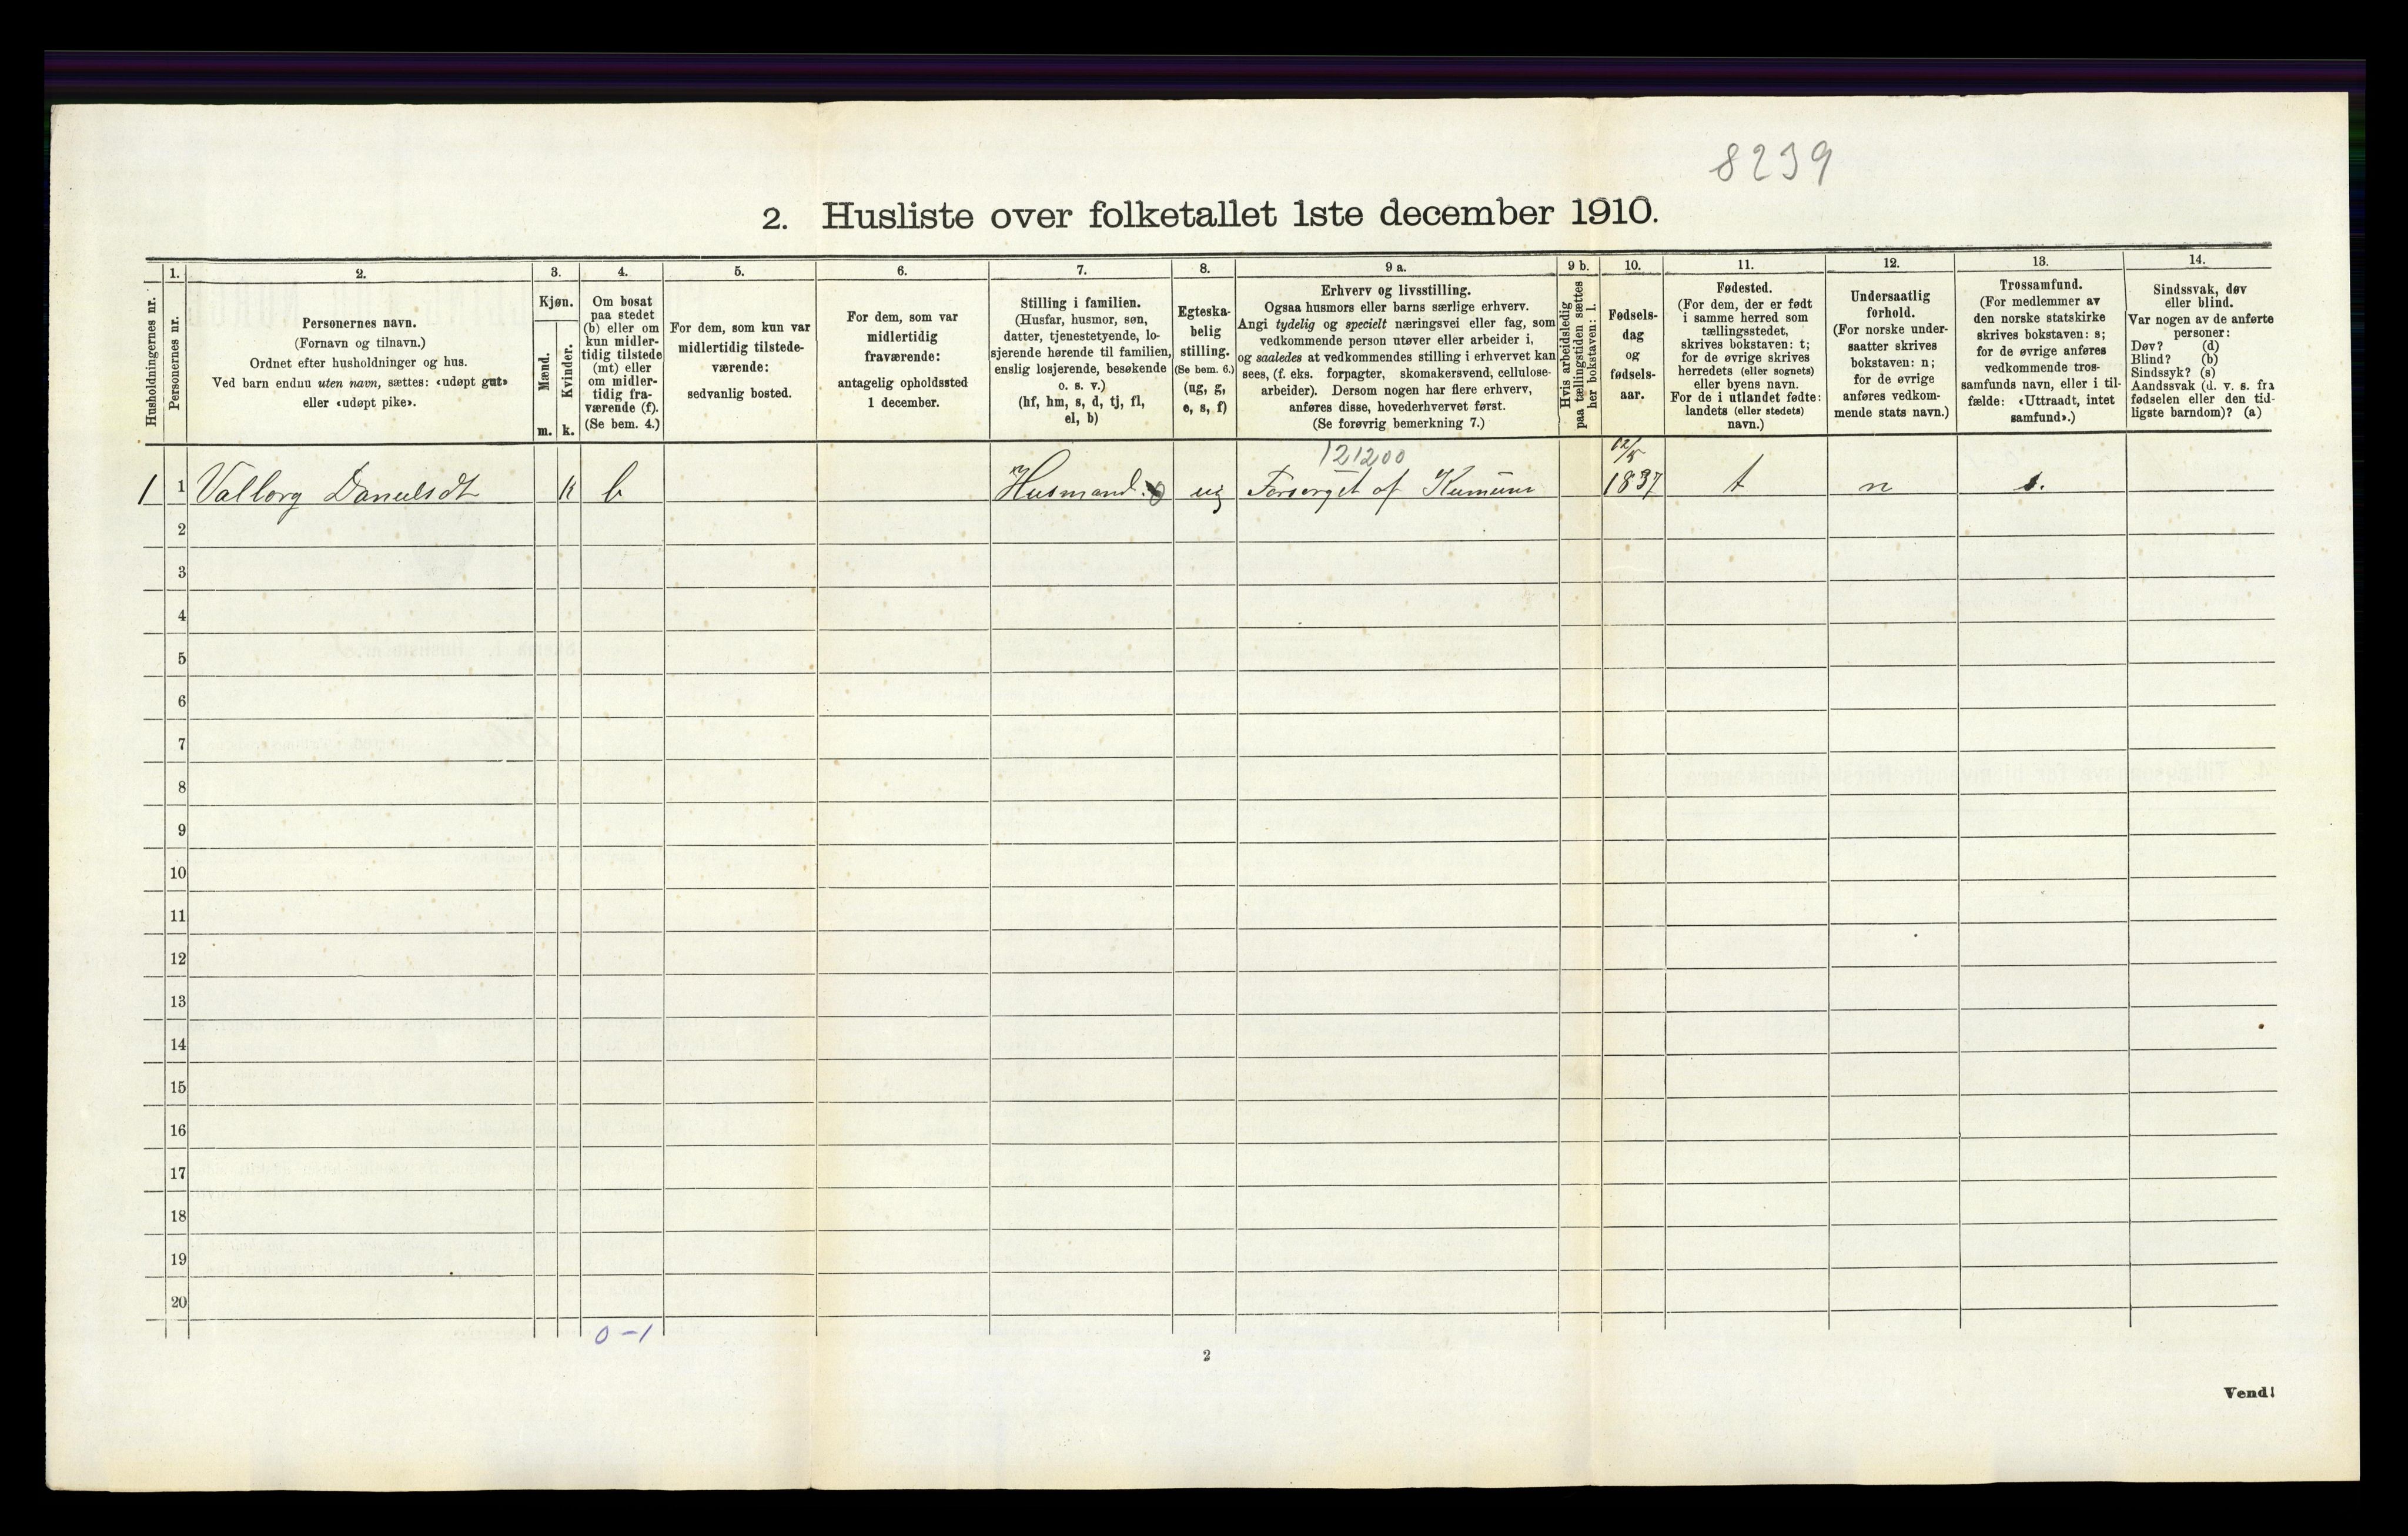 8239
2. Husliste over folketallet 1ste december 1910.
Husholdningernes nr.
1.
Personernes nr.
2.
Personernes navn.
(Fornavn og tilnavn.)
Ordnet efter husholdninger og hus.
Ved barn endnu uten navn, sættes: «udøpt gut»
eller «udøpt pike».
3.
Kjøn.
Mænd.
Kvinder.
m.
k.
4.
Om bosat
paa stedet
(b) eller om
kun midler-
tidig tilstede
(mt) eller
om midler-
tidig fra-
værende (f).
(Se bem. 4.)
5.
For dem, som kun var
midlertidig tilstede-
værende:
sedvanlig bosted.
6.
For dem, som var
midlertidig
fraværende:
antagelig opholdssted
1 december.
7.
Stilling i familien.
(Husfar, husmor, søn,
datter, tjenestetyende, lo-
sjerende hørende til familien,
enslig losjerende, besøkende
o. s. v.)
(hf, hm, s, d, tj, fl,
el, b)
8.
Egteska-
belig
stilling.
(Se bem. 6.)
(ug, g,
e, s, f)
9 a.
Erhverv og livsstilling.
Ogsaa husmors eller barns særlige erhverv.
Angi tydelig og specielt næringsvei eller fag, som
vedkommende person utøver eller arbeider i,
og saaledes at vedkommendes stilling i erhvervet kan
sees, (f. eks. forpagter, skomakersvend, cellulose-
arbeider). Dersom nogen har flere erhverv,
anføres disse, hovederhvervet først.
(Se forøvrig bemerkning 7.)
9 b.
Hvis arbeidsledig
paa tællingstiden sættes
her bokstaven: l.
10.
Fødsels-
dag
og
fødsels-
aar.
11.
Fødested.
(For dem, der er født
i samme herred som
tællingsstedet,
skrives bokstaven: t;
for de øvrige skrives
herredets (eller sognets)
eller byens navn.
For de i utlandet fødte:
landets (eller stedets)
navn.)
12.
Undersaatlig
forhold.
(For norske under-
saatter skrives
bokstaven: n;
for de øvrige
anføres vedkom-
mende stats navn.)
13.
Trossamfund.
(For medlemmer av
den norske statskirke
skrives bokstaven: s;
for de øvrige anføres
vedkommende tros-
samfunds navn, eller i til-
fælde: «Uttraadt, intet
samfund».)
14.
Sindssvak, døv
eller blind.
Var nogen av de anførte
personer:
Døv? (d)
Blind? (b)
Sindssyk? (s)
Aandssvak (d. v. s. fra
fødselen eller den tid-
ligste barndom)? (a)
121200
12/5
1 1 Valborg Danielsdt k b Husmand. ug Forsørget af Kumune 1837 t n s.
2
3
4
5
6
7
8
9
10
11
12
13
14
15
16
17
18
19
20
0 – 1
2
Vend!